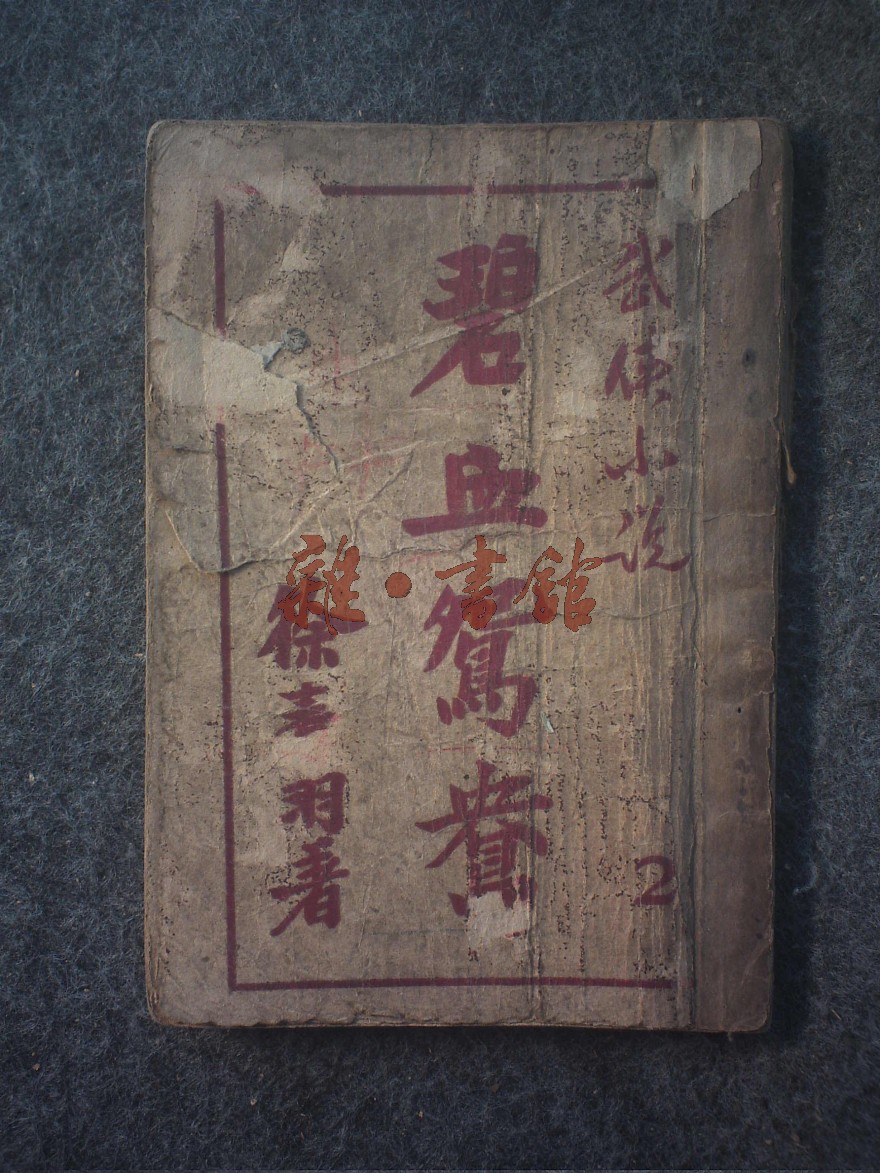 武俠小說
2
碧血鴛鴦
徐春羽著
雜·書館